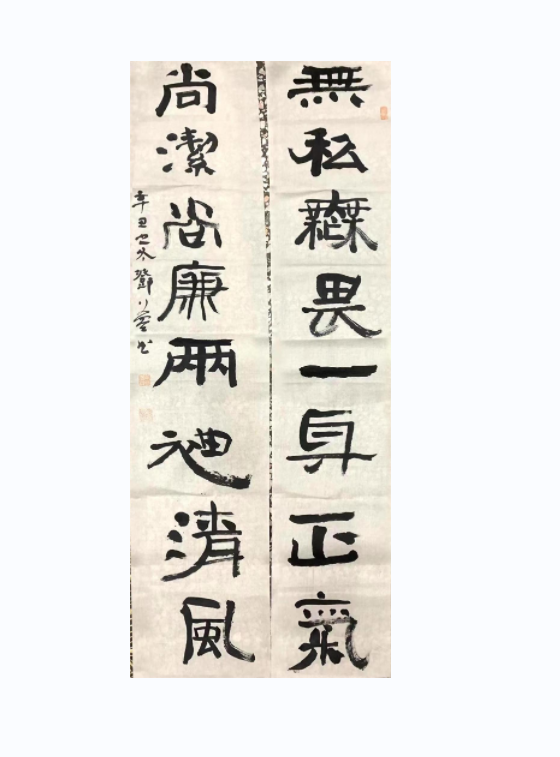 無私無畏一身正氣
尚潔尚廉兩袖清風
辛丑之冬鄧